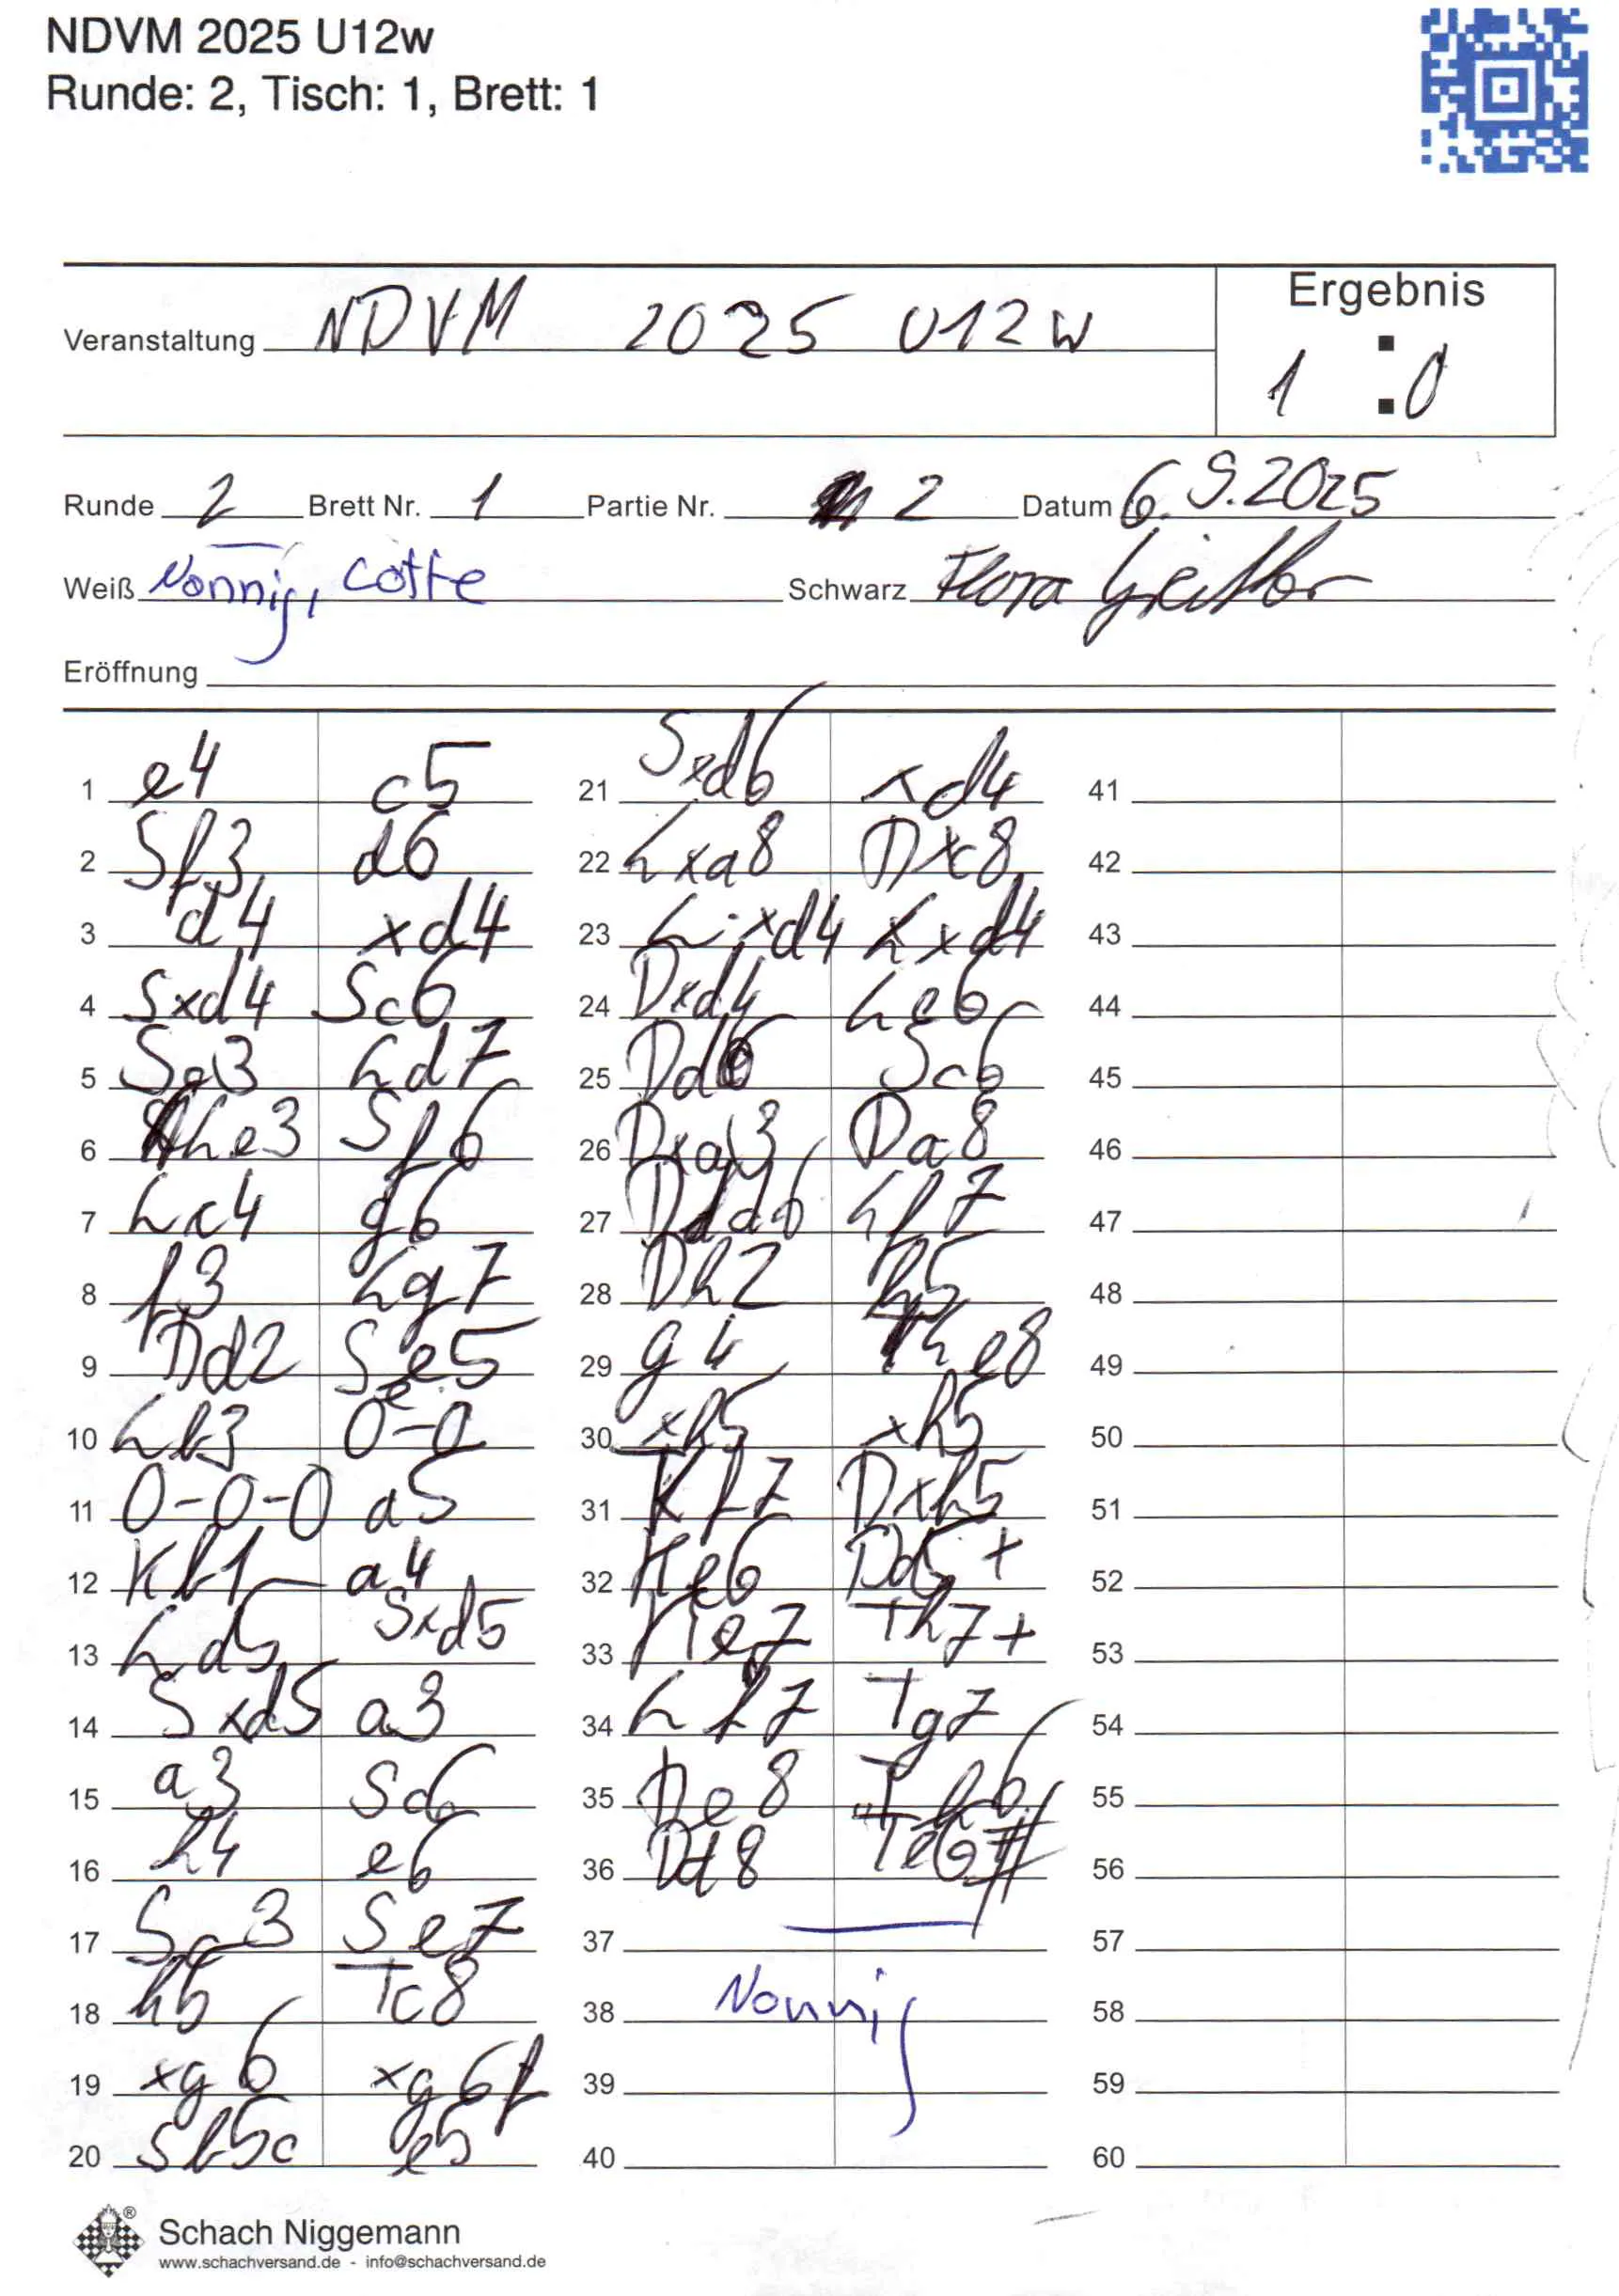 NDVM 2025 U12w
Runde: 2, Tisch: 1, Brett: 1
Ergebnis
Veranstaltung NDVM 2025 U12w
1 : 0
Runde 2 Brett Nr. 1 Partie Nr. 2 Datum 6.9.2025
Weiß Nonnig, Schwarz Flora
Eröffnung
1 e4 c5 21 Sxd6 xd4 41
2 Sf3 d6 22 Lxa8 Dxc8 42
3 d4 xd4 23 Lxd4 Lxd4 43
4 Sxd4 Sc6 24 Dxd4 Le6 44
5 Sc3 Ld7 25 Dd6 Sc6 45
6 Le3 Sf6 26 Dxa3 Da8 46
7 Lc4 g6 27 Dd6 Lf7 47
8 f3 Lg7 28 Dh2 h5 48
9 Dd2 Se5 29 g4 The8 49
10 Lb3 0-0 30 xh5 xh5 50
11 0-0-0 a5 31 Kf7 Dxh5 51
12 Kb1 a4 32 Ke6 Dd5+ 52
13 Ld5 Sxd5 33 Ke7 Th7+ 53
14 Sxd5 a3 34 Lf7 Tg7 54
15 a3 Sc6 35 De8 Th6 55
16 h4 e6 36 Dd8 Te6# 56
17 Sc3 Se7 37 57
18 h5 Tc8 38 Nonnig 58
19 xg6 xg6f 39 59
20 Sb5c e5 40 60
Schach Niggemann
www.schachversand.de - info@schachversand.de